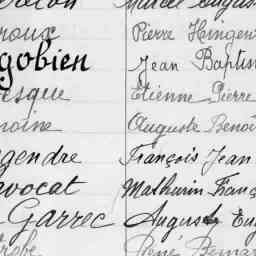 Pierre Hingen
gobien Jean Baptis
esque Etienne Pierre
moine Auguste Benoi
gendre François Jean
avocat Mathurin Franç
Garrec Auguste Eug
René Bernar